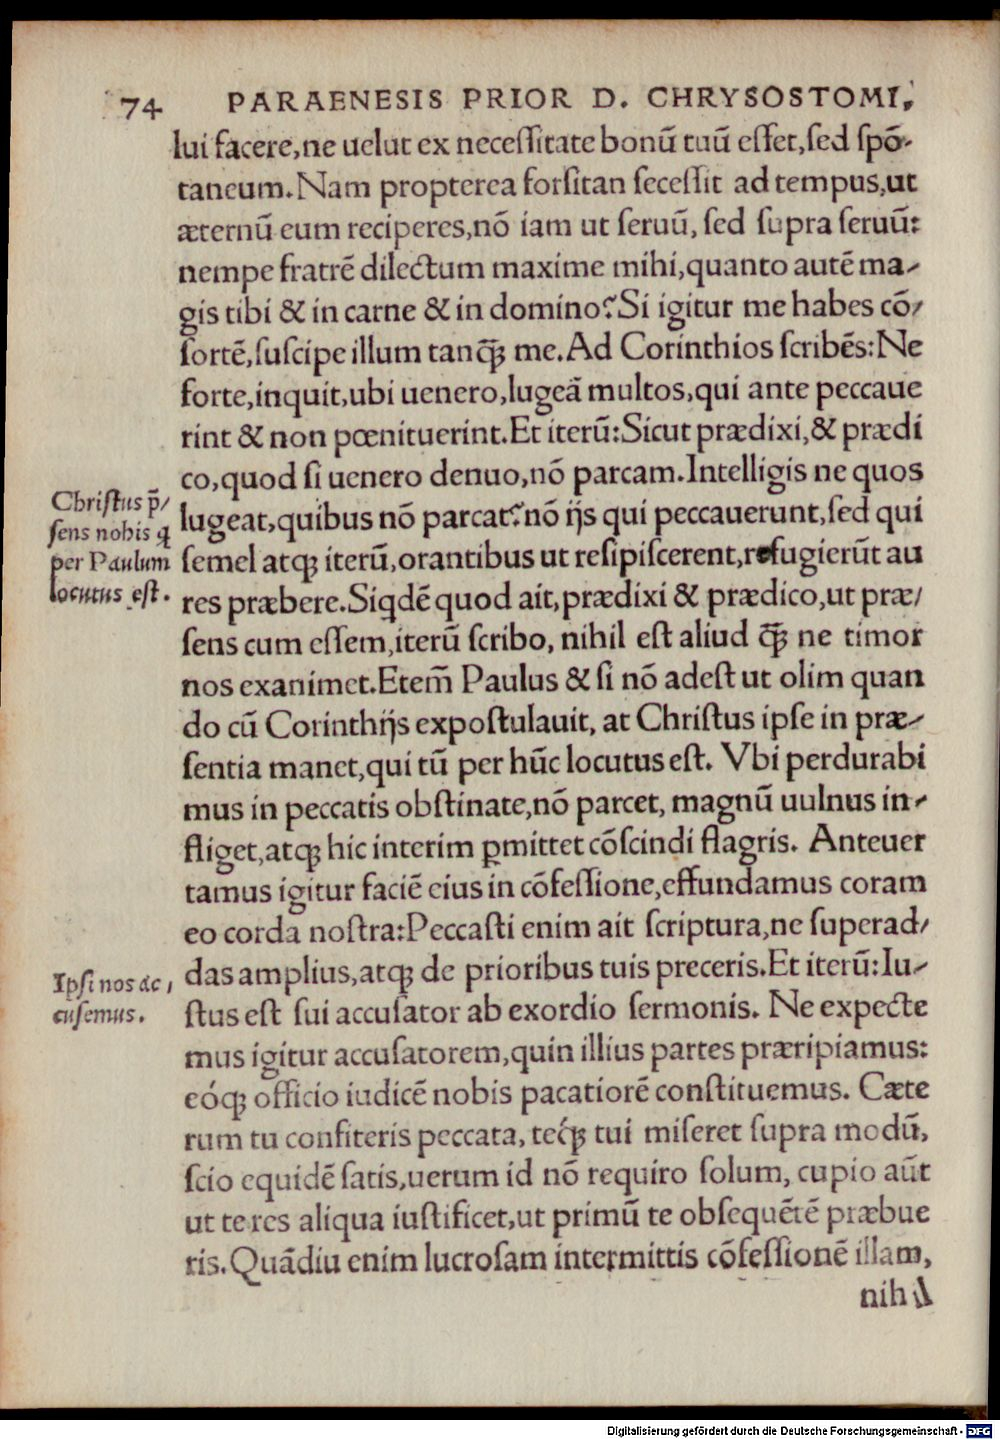 74 PARAENESIS PRIOR D. CHRYSOSTOMI,
lui facere,ne uelut ex neceſſitate bonū tuū eſſet,ſed ſpō-
taneum.Nam propterea forſitan ſeceſſit ad tempus,ut
æternū eum reciperes,nō iam ut ſeruū, ſed ſupra ſeruū:
nempe fratrē dilectum maxime mihi,quanto autē ma-
gis tibi & in carne & in domino? Si igitur me habes cō/
ſortē,ſuſcipe illum tanꝙ̄ me.Ad Corinthios ſcribēs:Ne
forte,inquit,ubi uenero,lugeā multos,qui ante peccaue
rint & non pœnituerint.Et iterū:Sicut prædixi,& prædi
co,quod ſi uenero denuo,nō parcam.Intelligis ne quos
Chriſtus p̄/
ſens nobis ꝗ
per Paulum
locutus eſt.
lugeat,quibus nō parcat? nō ijs qui peccauerunt,ſed qui
ſemel atqꝫ iterū,orantibus ut reſipiſcerent,refugierūt au
res præbere.Siqdē quod ait,prædixi & prædico,ut præ/
ſens cum eſſem,iterū ſcribo, nihil eſt aliud ꝙ̄ ne timor
nos exanimet.Etem̄ Paulus & ſi nō adeſt ut olim quan
do cū Corinthijs expoſtulauit, at Chriſtus ipſe in præ-
ſentia manet,qui tū per hūc locutus eſt. Vbi perdurabi
mus in peccatis obſtinate,nō parcet, magnū uulnus in-
fliget,atqꝫ hic interim ꝑmittet cōſcindi flagris. Anteuer
tamus igitur faciē eius in cōfeſſione,effundamus coram
eo corda noſtra:Peccaſti enim ait ſcriptura,ne ſuperad/
Ipſi nos ac,
cuſemus.
das amplius,atqꝫ de prioribus tuis preceris.Et iterū:Iu-
ſtus eſt ſui accuſator ab exordio ſermonis. Ne expecte
mus igitur accuſatorem,quin illius partes præripiamus:
eóqꝫ officio iudicē nobis pacatiorē conſtituemus. Cæte
rum tu confiteris peccata, teq́ꝫ tui miſeret ſupra modū,
ſcio equidē ſatis,uerum id nō requiro ſolum, cupio aūt
ut te res aliqua iuſtificet,ut primū te obſequētē præbue
ris.Quādiu enim lucroſam intermittis cōfeſſionē illam,
nihil
Digitalisierung gefördert durch die Deutsche Forschungsgemeinschaft - DFG